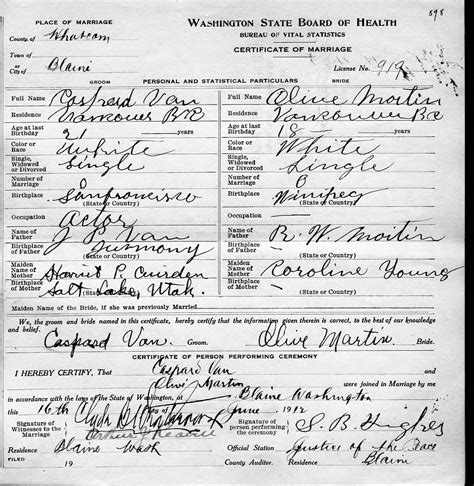 898
PLACE OF MARRIAGE
WASHINGTON STATE BOARD OF HEALTH
County of Whatcom
BUREAU OF VITAL STATISTICS
Town of
CERTIFICATE OF MARRIAGE
or City of Blaine
License No. 919
GROOM PERSONAL AND STATISTICAL PARTICULARS BRIDE
Full Name Caspard Van Full Name Olive Martin
Residence Vancouver BC Residence Vancouver BC
Age at last Birthday 21 years Age at last Birthday 18 years
Color or Race White Color or Race White
Single, Widowed or Divorced Single Single, Widowed or Divorced Single
Number of Marriage Number of Marriage
Birthplace San Francisco Birthplace Winipeg
(State or Country) (State or Country)
Occupation Actor Occupation
Name of Father J Van Name of Father R. W. Martin
Birthplace of Father Germony Birthplace of Father
(State or Country) (State or Country)
Maiden Name of Mother Harriet P. Maiden Name of Mother Caroline Young
Birthplace of Mother Salt Lake, Utah Birthplace of Mother
(State or Country) (State or Country)
Maiden Name of the Bride, if she was previously married
We, the groom and bride named in this certificate, hereby certify that the information given therein is correct, to the best of our knowledge
and belief.
Caspard Van. Groom. Olive Martin. Bride.
CERTIFICATE OF PERSON PERFORMING CEREMONY
I HEREBY CERTIFY, That Caspard Van
and Olive Martin were joined in Marriage by me
in accordance with the laws of the State of Washington, at Blaine Washington
this 16th day of June 1912
Signature of Witnesses to the Marriage Clyde
Signature of person performing the ceremony S. B. Hughes
Residence Blaine Wash Official Station Justice of the Peace
FILED 19 County Auditor. Residence Blaine